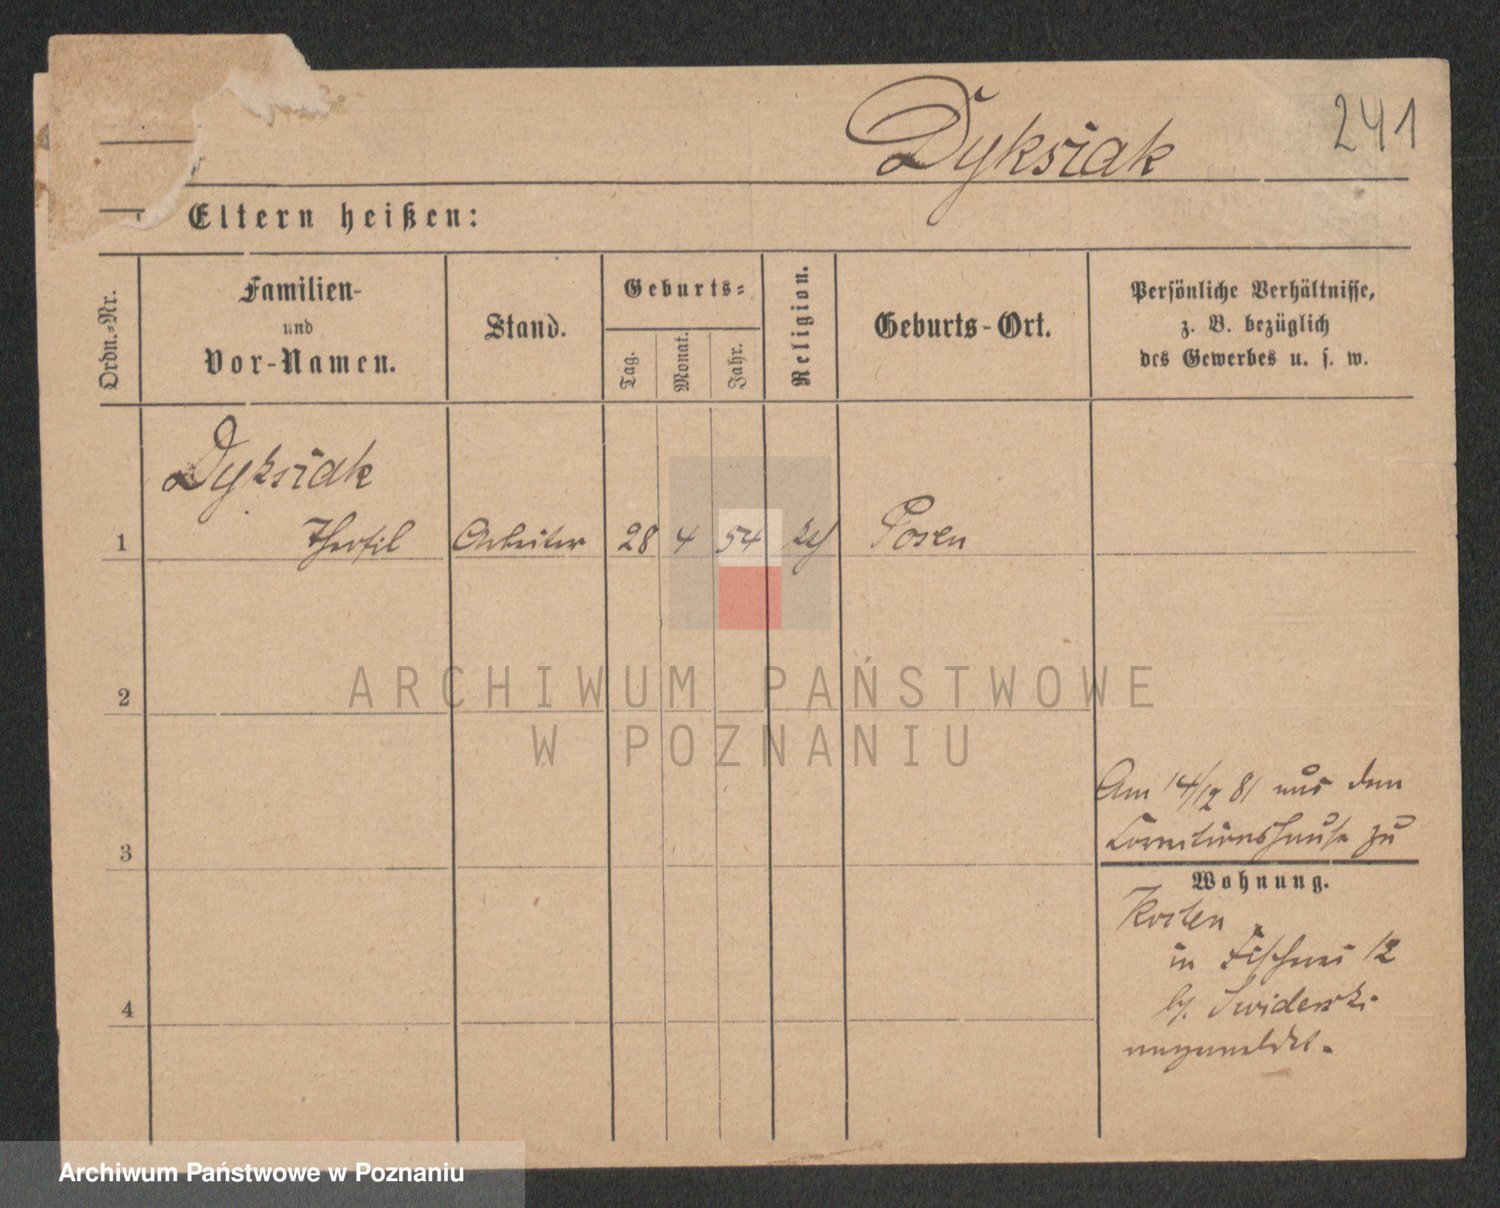 241
Dyksiak
Eltern heißen:
Ordn.-Nr.
Familien-
und
Vor-Namen.
Stand.
Geburts-
Tag.
Monat.
Jahr.
Religion.
Geburts-Ort.
Persönliche Verhältnisse,
z. B. bezüglich
des Gewerbes u. s. w.
Dyksiak
1 Theofil Arbeiter 28 4 54 Posen
2
3
4
Am 14/12 81 aus dem
Correctionshause zu
Wohnung.
Kosten
in Fischerei 12
b/. Swiderski
angemeldet.
ARCHIWUM PAŃSTWOWE
W POZNANIU
Archiwum Państwowe w Poznaniu